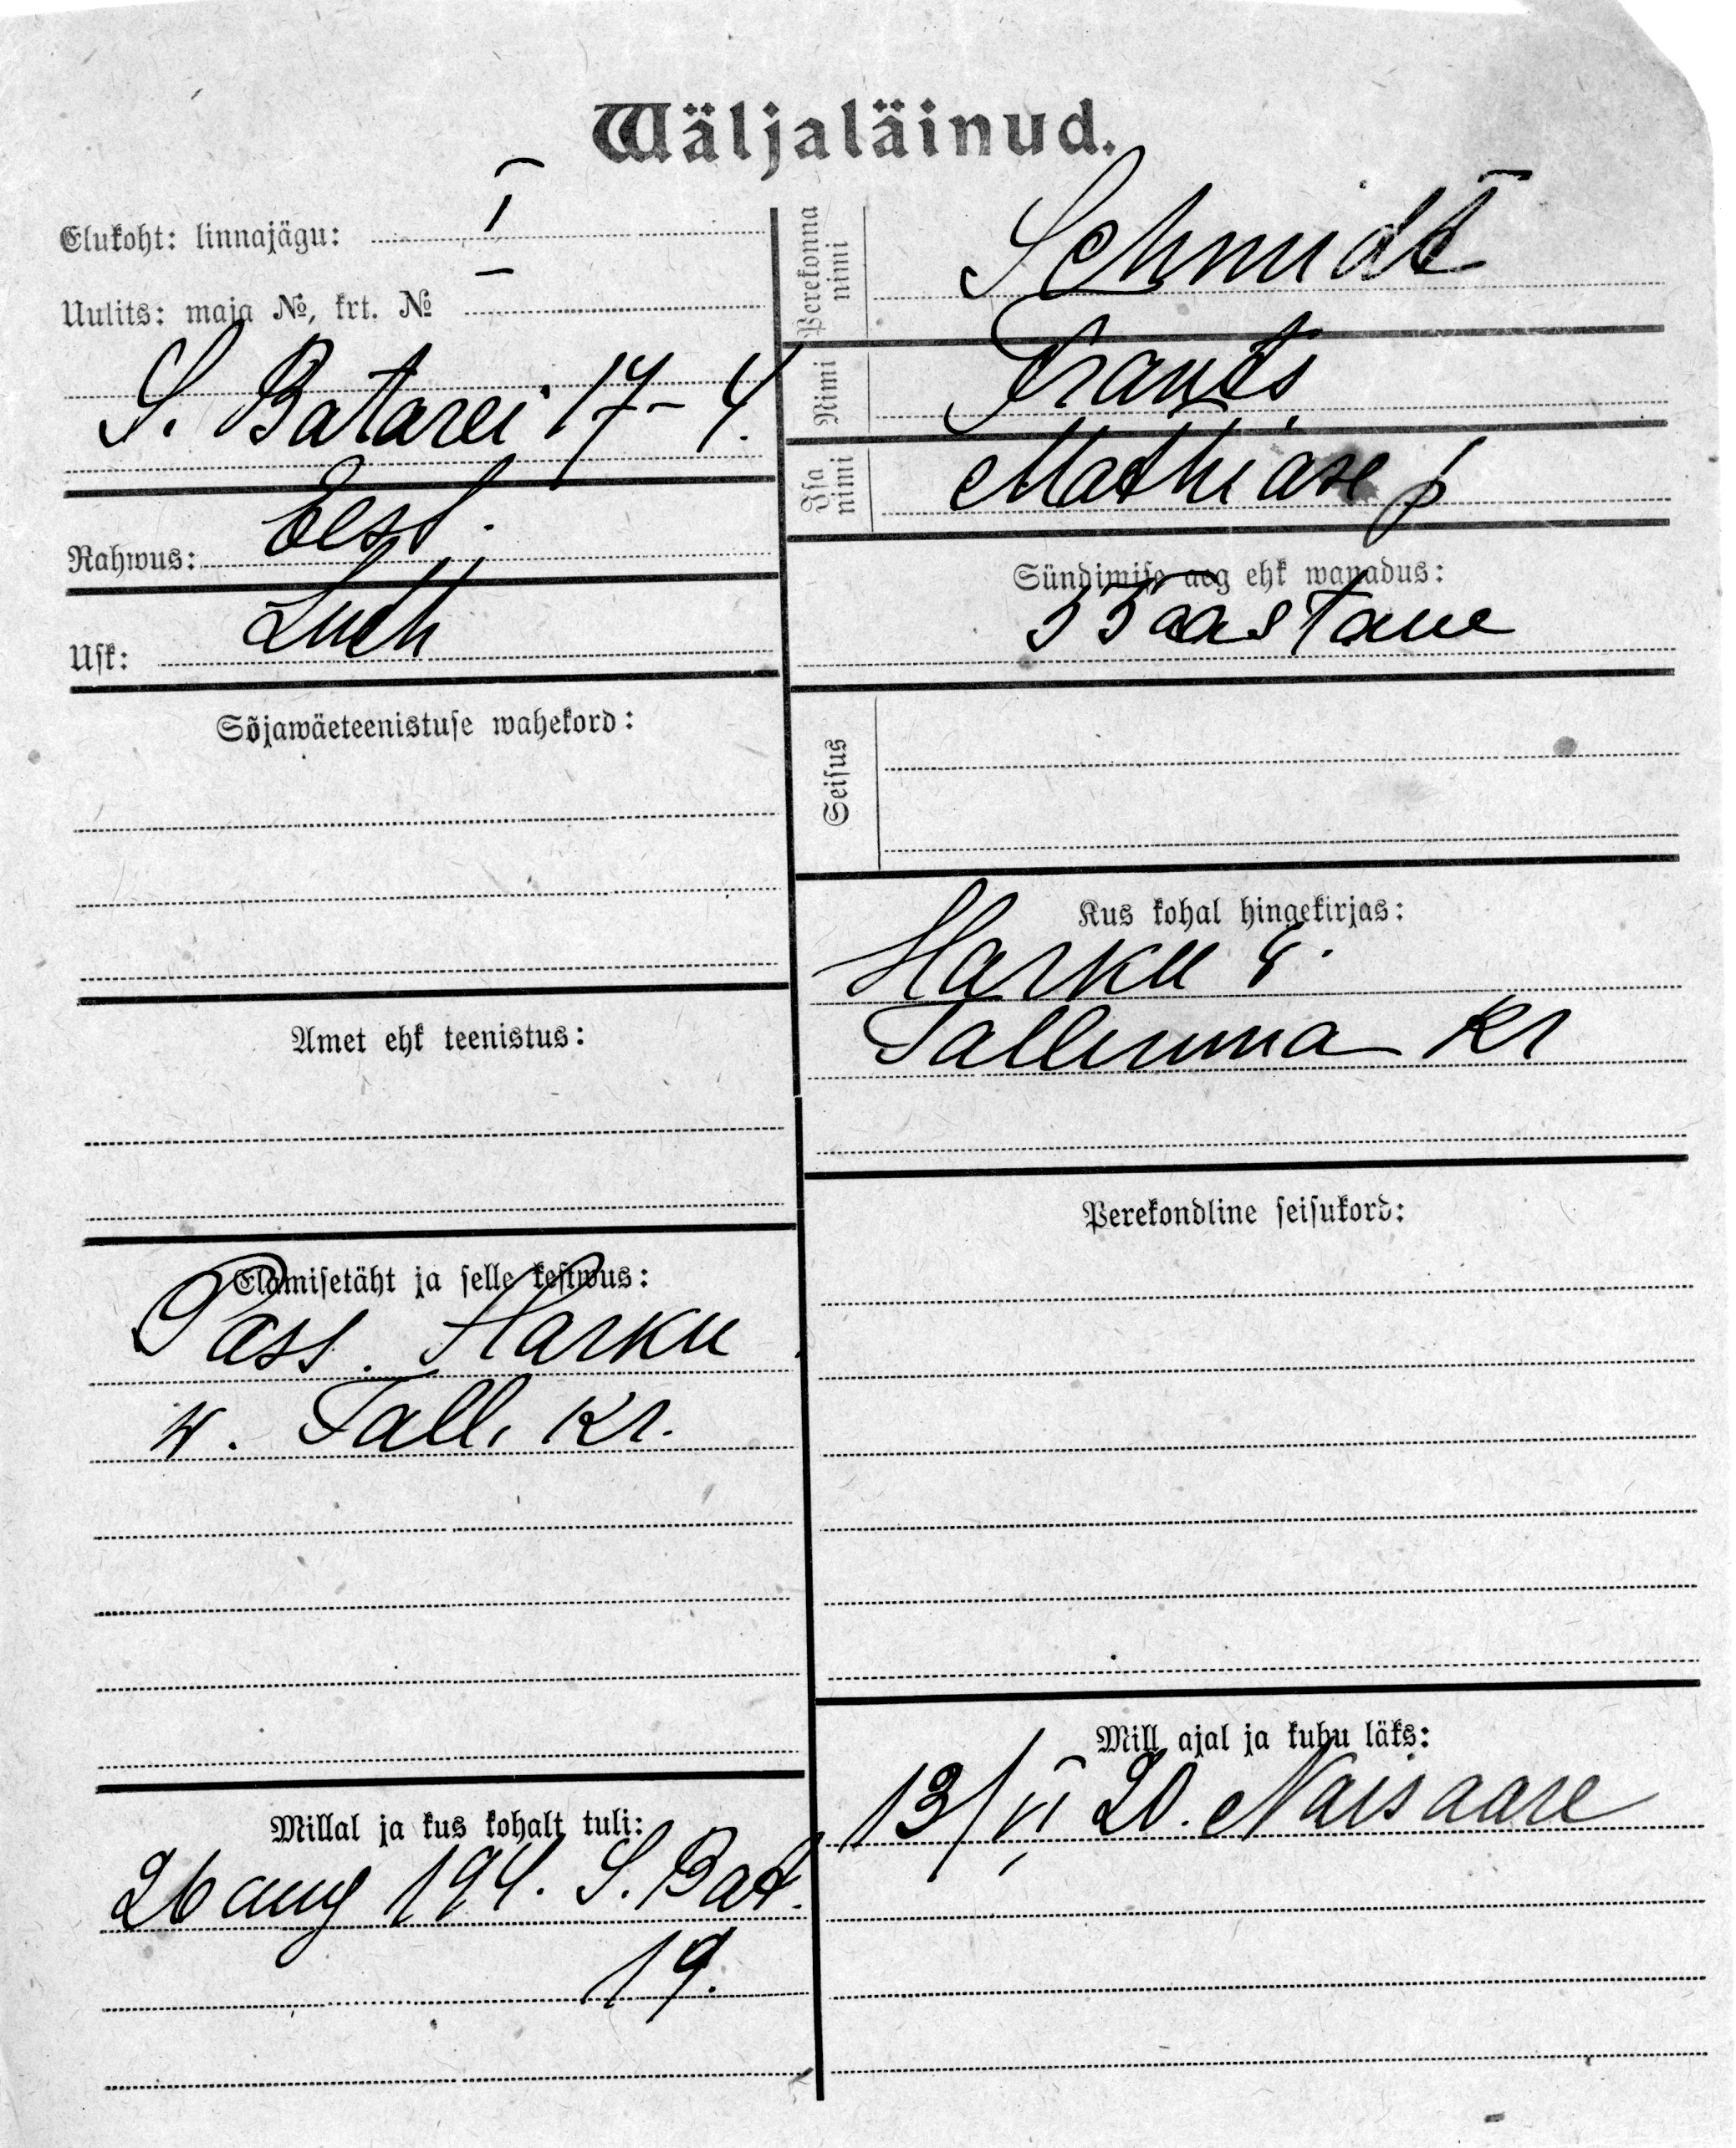 Wäljaläinud.
Elukoht: linnajägu: I
Uulits: maja №, krt. №
S. Batarei 17-4.
Rahwus: Eest.
Usk: Luth
Sõjawäeteenistuse wahekord:
Amet ehk teenistus:
Elamisetäht ja selle kestwus:
Pass. Harku
w. Tall. Kr.
Millal ja kus kohalt tuli:
26 aug 194. S. Bat.
19.
Perekonna nimi Schmidt
Nimi Frants
Isa nimi Mathiase p
Sündimise aeg ehk wanadus:
55 aastane
Seisus
Kus kohal hingekirjas:
Harku
Tallinna Kr
Perekondline seisukord:
Mill ajal ja kuhu läks:
13/VI 20. Naisaare